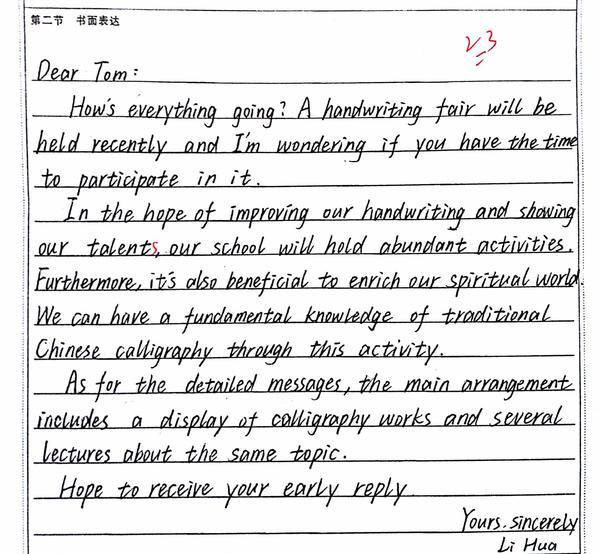 第二节 书面表达
23
Dear Tom:
How's everything going? A handwriting fair will be
held recently and I'm wondering if you have the time
to participate in it.
In the hope of improving our handwriting and showing
our talents, our school will hold abundant activities.
Furthermore, it's also beneficial to enrich our spiritual world.
We can have a fundamental knowledge of traditional
Chinese calligraphy through this activity.
As for the detailed messages, the main arrangement
includes a display of calligraphy works and several
lectures about the same topic.
Hope to receive your early reply
Yours. sincerely
Li Hua